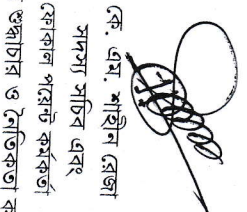 কে. এম. শাহিন রেজা
সদস্য সচিব এবং
ফোকাল পয়েন্ট কর্মকর্তা
শুদ্ধাচার ও নৈতিকতা ক